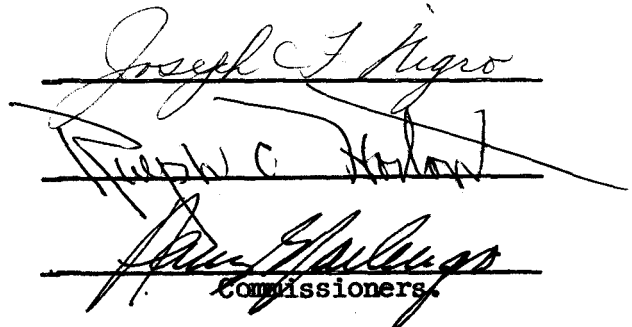 Joseph F. Nigro
Ralph C. Horton
Commissioners.